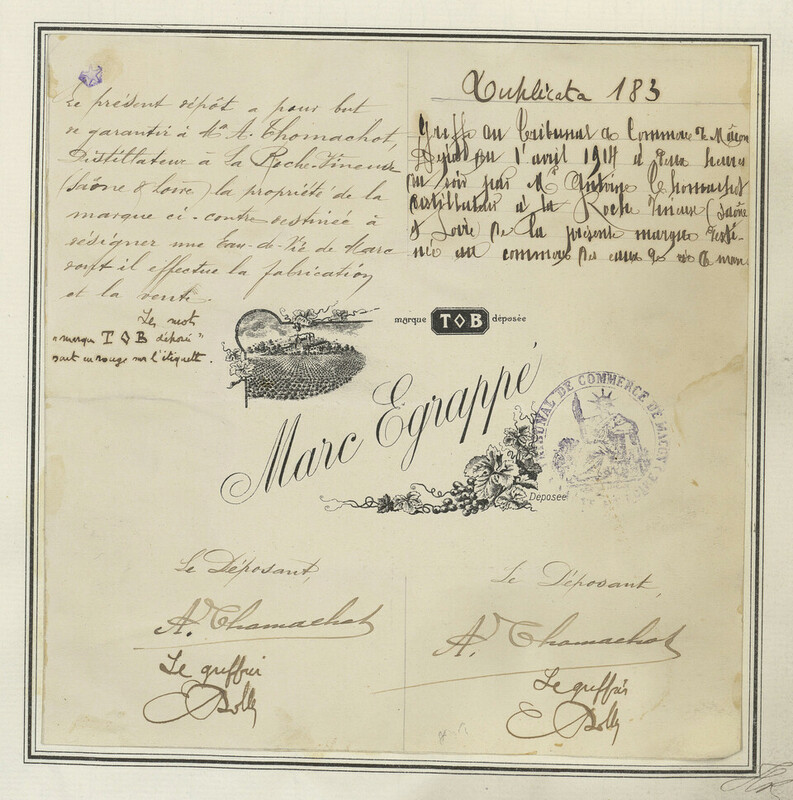 Le présent dépôt a pour but
de garantir à Mr A. Thomachot,
Distillateur à La Roche-Vineuse
(Saône & Loire) la propriété de la
marque ci-contre destinée à
désigner une Eau-de-Vie de Marc
dont il effectue la fabrication
et la vente.
Les mots
"marque T ◊ B déposée"
sont en rouge sur l'étiquette.
Duplicata 183
Greffe du Tribunal de Commerce de Mâcon
Déposé du 1er avril 1914 à deux heures
du soir par Mr Antoine Thomachot
distillateur à la Roche Vineuse (Saône
& Loire de la présente marque desti-
née au commerce des eaux de vie de marc
marque T ◊ B déposée
Marc Egrappé
Déposée
TRIBUNAL DE COMMERCE DE MACON
Le Déposant,
A. Thomachot
Le greffier
Le Déposant,
A. Thomachot
Le greffier